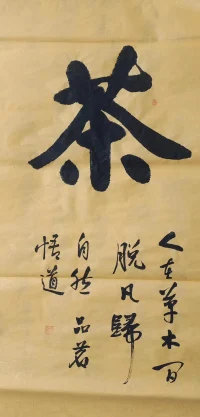 茶
人在草木間
脫凡歸
自然 品茗
悟道